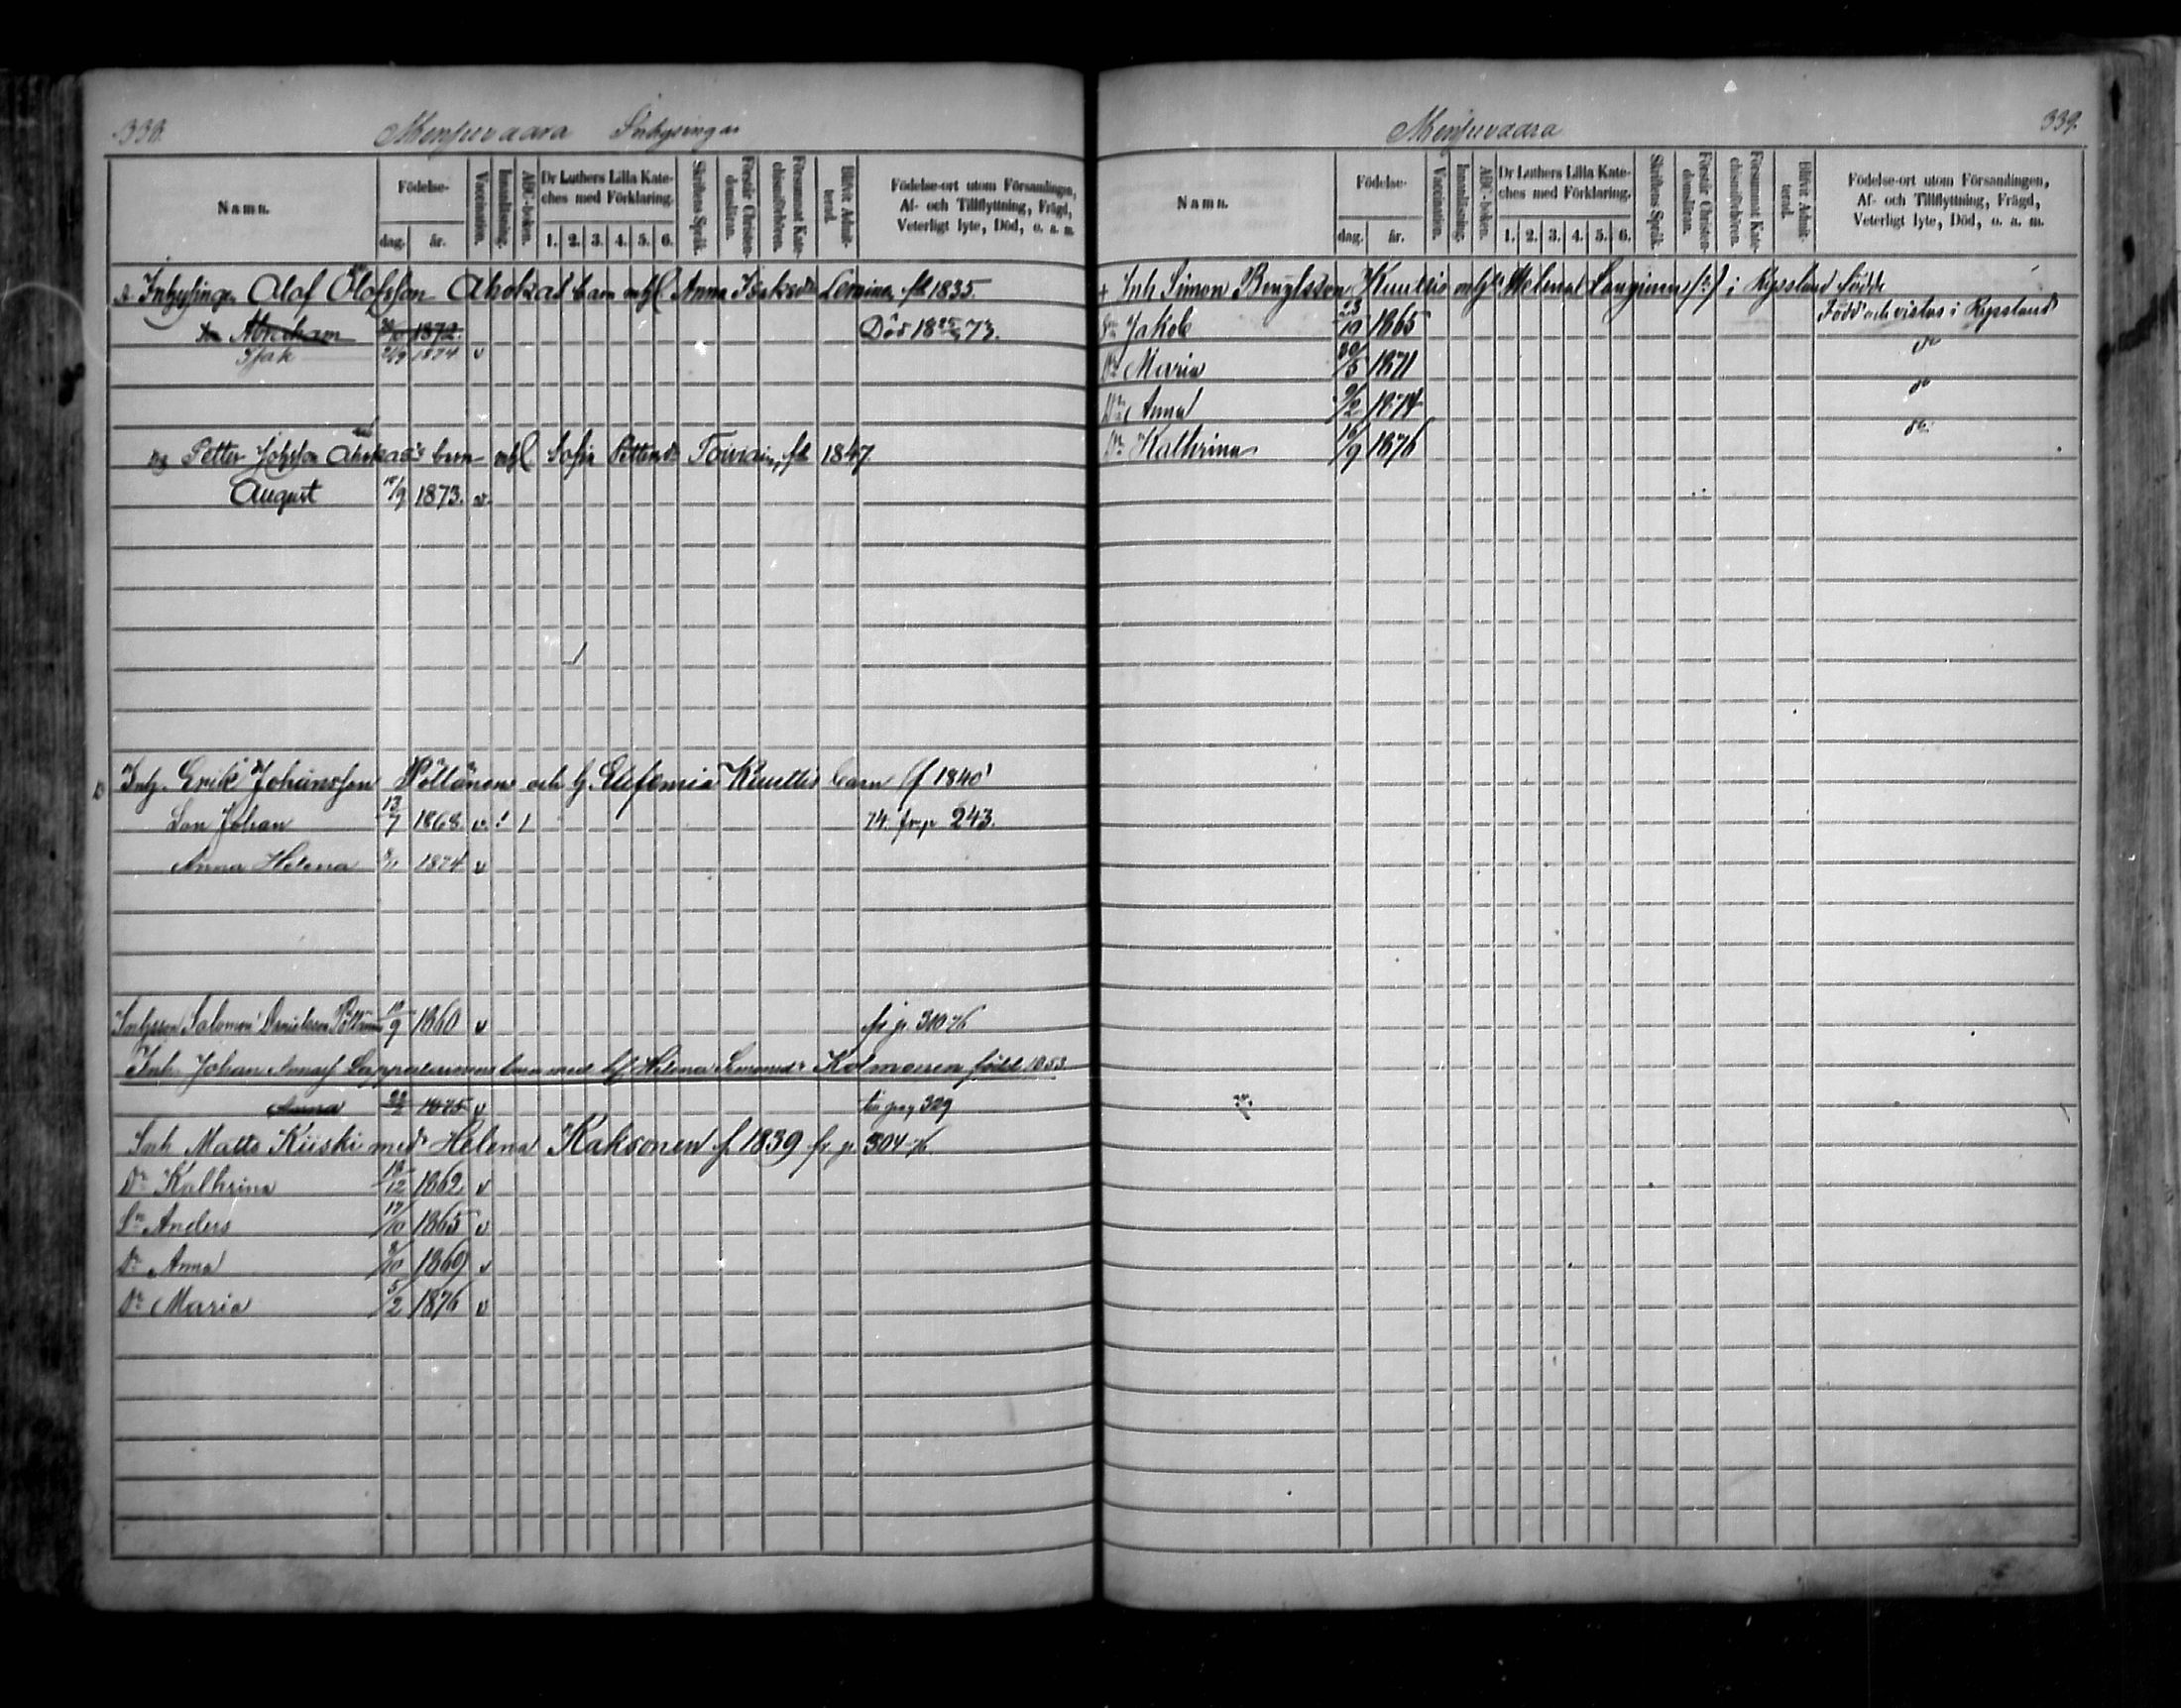 338. Menjuvaara Inhysingar
Namn. Födelse- dag. år. Vaccination. Innanläsning. ABC-boken. Dr Luthers Lilla Kate-ches med Förklaring. 1. 2. 3. 4. 5. 6. Skriftens Språk. Förstår Christen-domsläran. Försummat Kate-chismiförhören. Blifvit Admit-terad. Födelse-ort utom Församlingen, Af- och Tillflyttning, Frägd, Veterligt lyte, Död, o. a. m.
Inhysinge Olof Olofsson Ahokas barn Anna Leminen 1835.
Abraham 1872. Död 73.
Isak 1874 v
Petter Johsson Ahokas's barn Sofia Pettersdr Toivain 1847.
August 9 1873. v.
Inh. Erik Johansson Pöllänen och h. Eufemia Knuttis barn (f 1840)
Son Johan 13/7 1868 v. ! 1 74. fr. p 243.
Anna Helena 1874 v
Inhysson Salomon Danielsson Pöllänen 9 1860 v fr p. 310 76
Inh. Johan Lappalainens barn med h Helena Kolmonen född 1853
Anna 1875 v till pag 329
Inh Matts Kiiski med Helena Kaksonen f. 1839 fr. p. 304 76
Dr Kathrina 12 1862 v
Sn Anders 17/10 1865 v
Dr Anna 10 1869 v
Dr Maria 5/2 1876 v
Menjuvaara 339.
Namn. Födelse- dag. år. Vaccination. Innanläsning. ABC-boken. Dr Luthers Lilla Kate-ches med Förklaring. 1. 2. 3. 4. 5. 6. Skriftens Språk. Förstår Christen-domsläran. Försummat Kate-chismiförhören. Blifvit Admit-terad. Födelse-ort utom Församlingen, Af- och Tillflyttning, Frägd, Veterligt lyte, Död, o. a. m.
+ Inh Simon Bengtsson Knuttis Helena Langinen i Ryssland födde
Sn Jakob 23/10 1865 Född och vistas i Ryssland
Dr Maria 30/5 1871 do
Dr Anna 9/2 1874 do
Dr Kathrina 16/9 1876 do